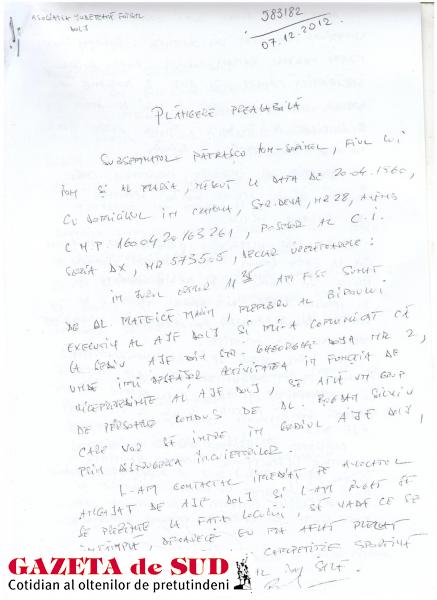 ASOCIAȚIA JUDEȚEANĂ FOTBAL
DOLJ
583182
07.12.2012
PLÂNGERE PREALABILĂ
SUBSEMNATUL PĂTRAȘCO ION-SORINEL, FIUL LUI
ION ȘI AL MARIA, NĂSCUT LA DATA DE 20.04.1960,
CU DOMICILIUL ÎN CRAIOVA, STR. DEVA, NR 28, AVÂND
CNP. 1600420163261, POSESOR AL C.I.
SERIA DX, NR 573505, DECLAR URMĂTOARELE:
ÎN JURUL OREI 11 AM FOST SUNAT
DE DL. MATEICĂ MARIN, MEMBRU AL BIROULUI
EXECUTIV AL AJF DOLJ ȘI MI-A COMUNICAT CĂ
LA SEDIU AJF DIN STR. GHEORGHE DOJA NR 2,
UNDE ÎMI DESFĂȘOR ACTIVITATEA ÎN FUNCȚIA DE
VICEPREȘEDINTE AL AJF DOLJ, SE AFLĂ UN GRUP
DE PERSOANE CONDUS DE DL. BOGDAN SILVIU
CARE VOR SĂ INTRE ÎN SEDIUL AJF DOLJ,
PRIN DISTRUGEREA ÎNCUIETORILOR.
L-AM CONTACTAT IMEDIAT PE AVOCATUL
ANGAJAT DE AJF DOLJ ȘI L-AM RUGAT SĂ
SE PREZINTE LA FAȚA LOCULUI, SĂ VADĂ CE SE
ÎNTÂMPLĂ, DEOARECE EU MĂ AFLAM PLECAT
COMPETIȚIE SPORTIVĂ
GAZETA de SUD
Cotidian al oltenilor de pretutindeni